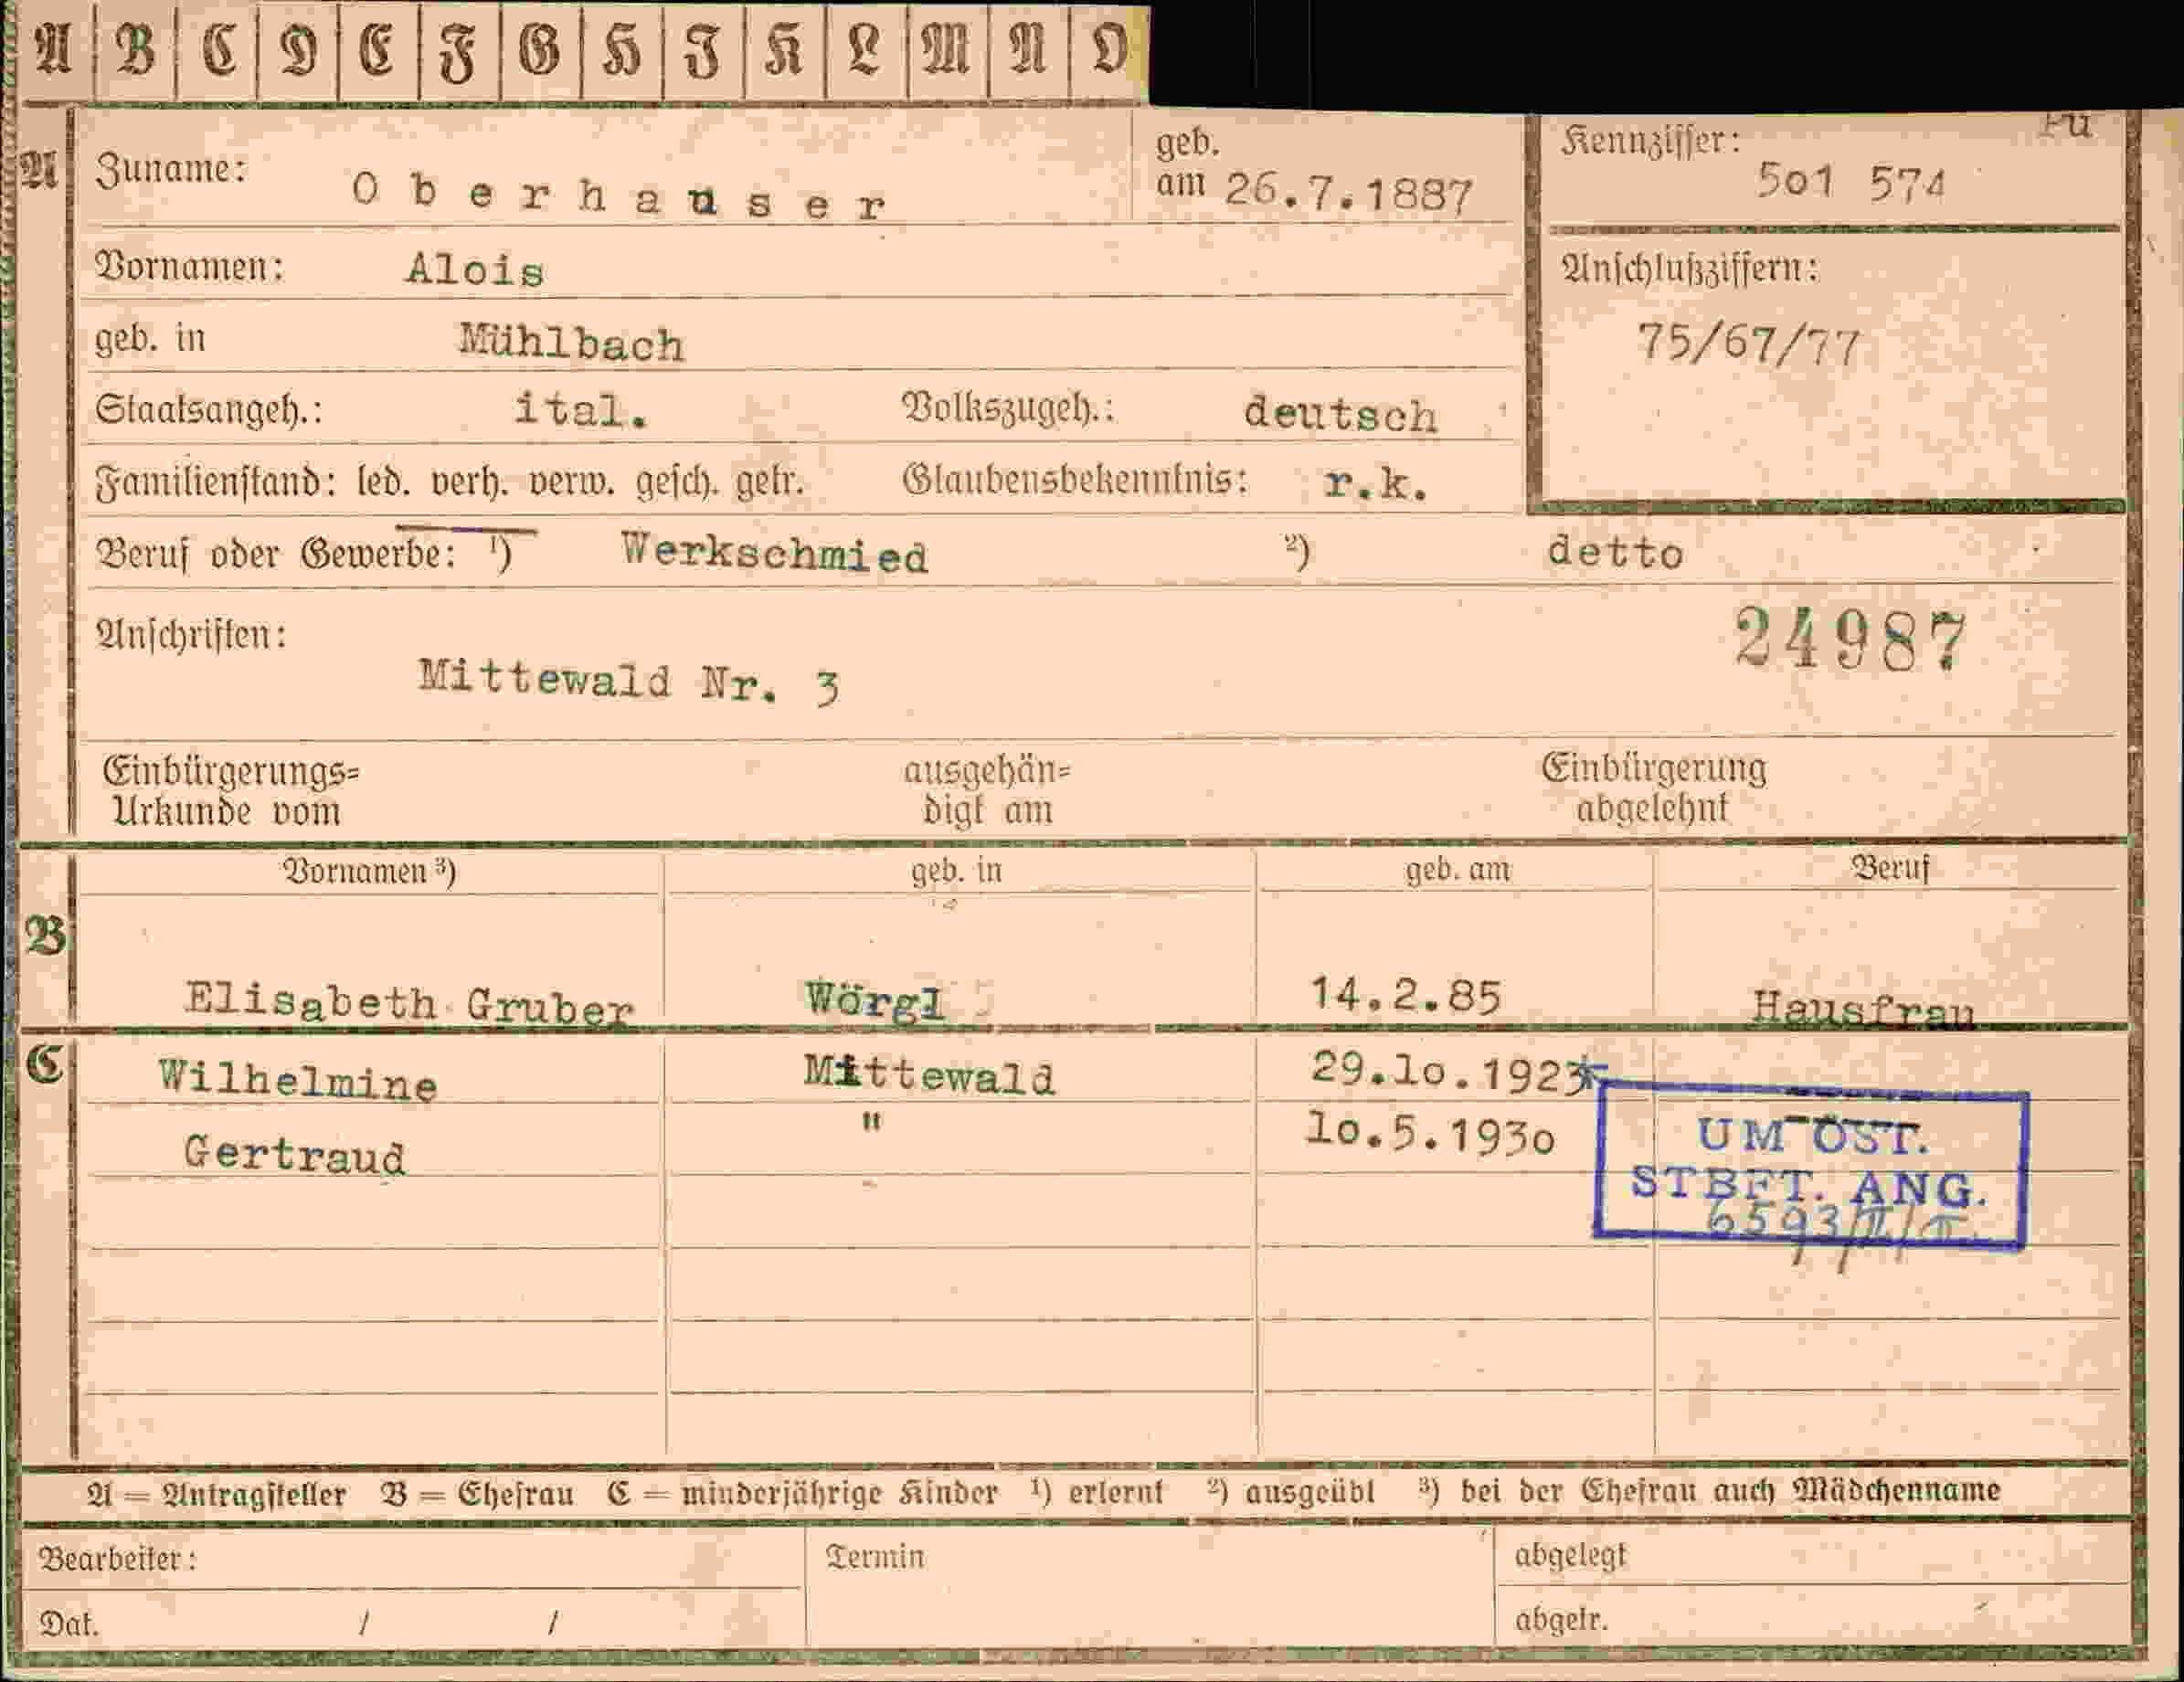 A B C D E F G H I K L M N O
A Zuname: Oberhauser geb. am 26.7.1887 Kennziffer: 5o1 574
Vornamen: Alois Anschlußziffern:
geb. in Mühlbach 75/67/77
Staatsangeh.: ital. Volkszugeh.: deutsch
Familienstand: led. verh. verw. gesch. getr. Glaubensbekenntnis: r.k.
Beruf oder Gewerbe: ¹) Werkschmied ²) detto
Anschriften: 24987
Mittewald Nr. 3
Einbürgerungs= ausgehän= Einbürgerung
Urkunde vom digt am abgelehnt
Vornamen ³) geb. in geb. am Beruf
B
Elisabeth Gruber Wörgl 14.2.85 Hausfrau
C Wilhelmine Mittewald 29.1o.1923
Gertraud " 1o.5.193o
UM ÖST.
STBFT. ANG.
6593/II/
A = Antragsteller B = Ehefrau C = minderjährige Kinder ¹) erlernt ²) ausgeübt ³) bei der Ehefrau auch Mädchenname
Bearbeiter: Termin abgelegt
Dat. / / abgetr.